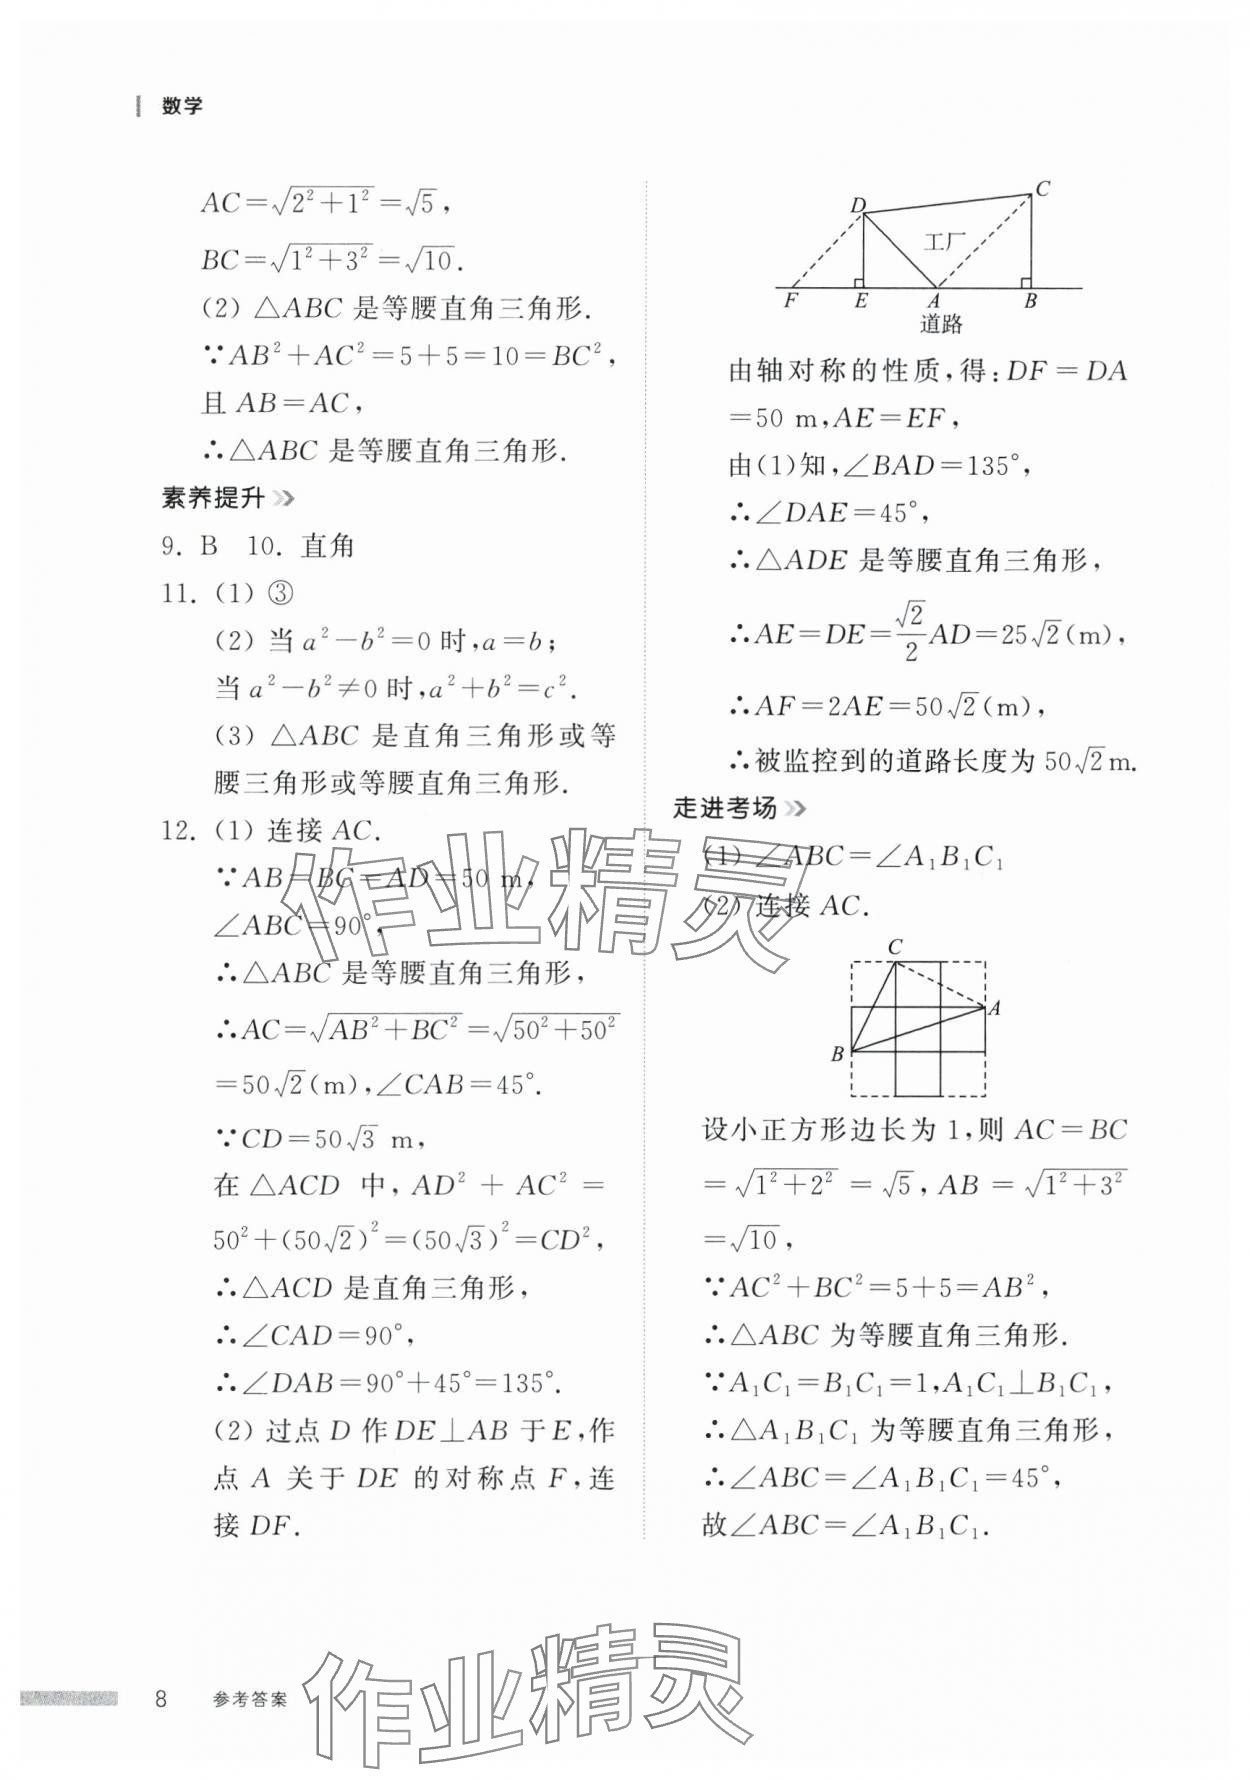 数学
AC=√(2²+1²)=√5,
BC=√(1²+3²)=√10.
(2) △ABC 是等腰直角三角形.
∵AB²+AC²=5+5=10=BC²,
且 AB=AC,
∴△ABC 是等腰直角三角形.
素养提升
9. B 10. 直角
11. (1) ③
(2) 当 a²-b²=0 时,a=b;
当 a²-b²≠0 时,a²+b²=c².
(3) △ABC 是直角三角形或等
腰三角形或等腰直角三角形.
12. (1) 连接 AC.
∵AB=BC=AD=50 m,
∠ABC=90°,
∴△ABC 是等腰直角三角形,
∴AC=√(AB²+BC²)=√(50²+50²)
=50√2(m),∠CAB=45°.
∵CD=50√3 m,
在 △ACD 中, AD² + AC² =
50²+(50√2)²=(50√3)²=CD²,
∴△ACD 是直角三角形,
∴∠CAD=90°,
∴∠DAB=90°+45°=135°.
(2) 过点 D 作 DE⊥AB 于 E,作
点 A 关于 DE 的对称点 F,连
接 DF.
C
D
工厂
F E A B
道路
由轴对称的性质,得:DF=DA
=50 m,AE=EF,
由(1)知,∠BAD=135°,
∴∠DAE=45°,
∴△ADE 是等腰直角三角形,
∴AE=DE=√2/2AD=25√2(m),
∴AF=2AE=50√2(m),
∴被监控到的道路长度为 50√2m.
走进考场
(1) ∠ABC=∠A₁B₁C₁
(2) 连接 AC.
C
A
B
设小正方形边长为 1,则 AC=BC
=√(1²+2²)=√5, AB=√(1²+3²)
=√10,
∵AC²+BC²=5+5=AB²,
∴△ABC 为等腰直角三角形.
∵A₁C₁=B₁C₁=1,A₁C₁⊥B₁C₁,
∴△A₁B₁C₁ 为等腰直角三角形,
∴∠ABC=∠A₁B₁C₁=45°,
故∠ABC=∠A₁B₁C₁.
作业精灵
作业精灵
8 参考答案